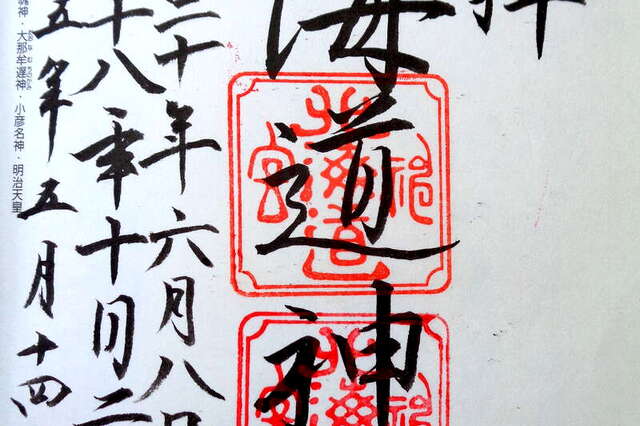 拝
海道神
二十年六月八日
十八年十月二
五年五月十四
魂神・大那牟遅神・小彦名神・明治天皇